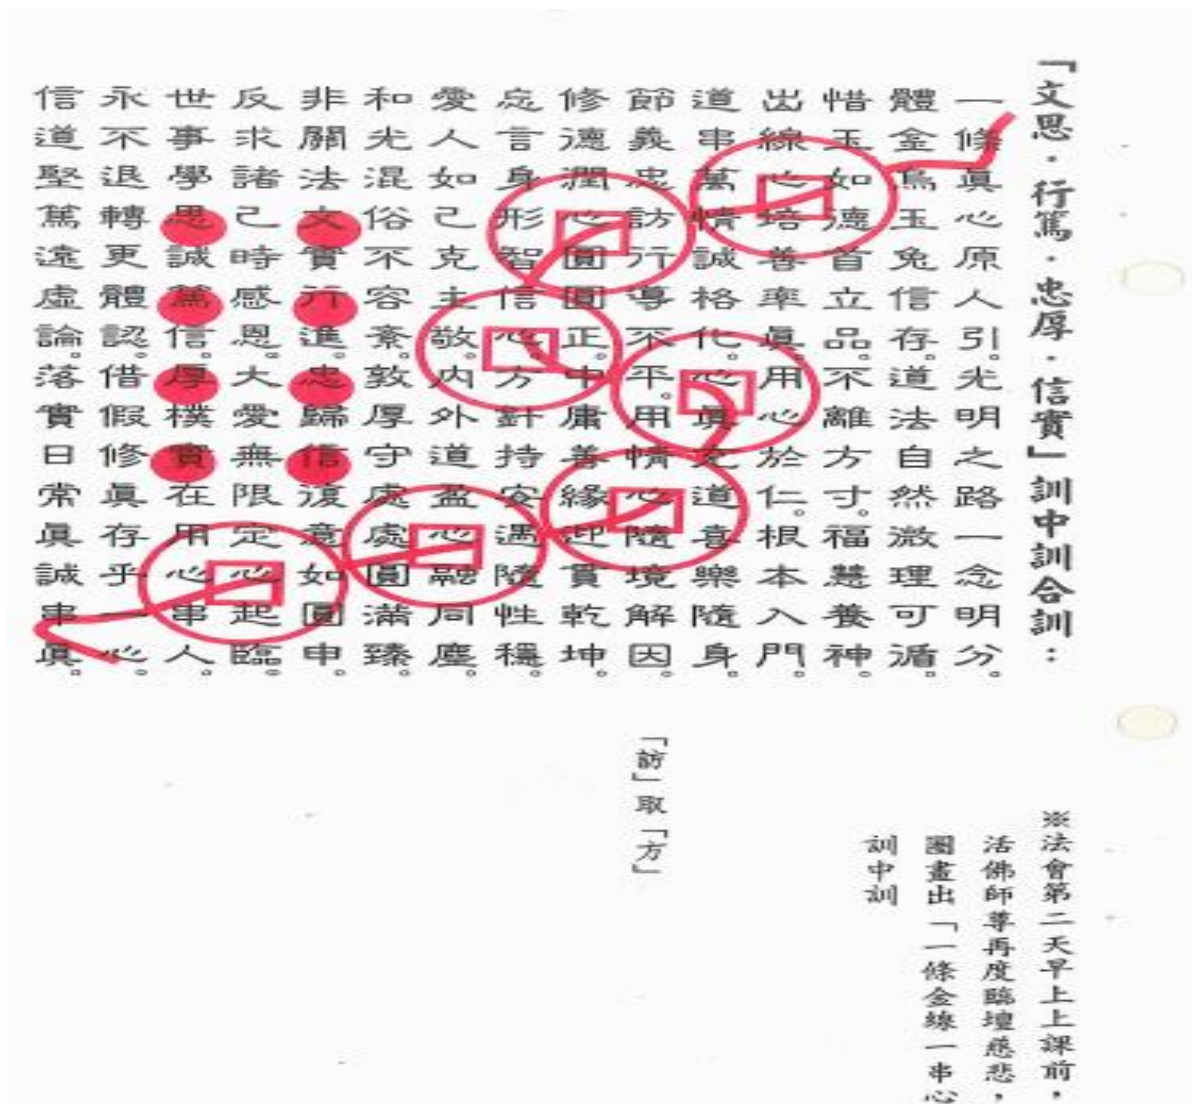 「文思．行篤．忠厚．信實」訓中訓合訓：
一條眞心原人引。光明之路一念明分。
體金烏玉兔信存。道法自然微理可循。
惜玉如德首立品。不離方寸。福慧養神。
出線心培善率眞。用心於仁。根本入門。
道串萬情誠格化。心眞允道喜樂隨身。
節義忠訪行導不平。用情心隨境解因。
修德潤心圓圓正。中庸善緣迎貫乾坤。
忘言身形智信心。方針持安遇隨性穩。
愛人如己克主敬。內外道盈心融同塵。
和光混俗不容紊。敦厚守處處圓滿臻。
非關法文實行進。忠歸信復意如圓申。
反求諸己時感恩。大愛無限定心起臨。
世事學思誠篤信。厚樸實在用心串人。
永不退轉更體認。借假修眞存乎一心。
信道堅篤遠虛論。落實日常眞誠串眞。
「訪」取「方」
※法會第二天早上上課前，
活佛師尊再度臨壇慈悲，
圈畫出「一條金線一串心
訓中訓